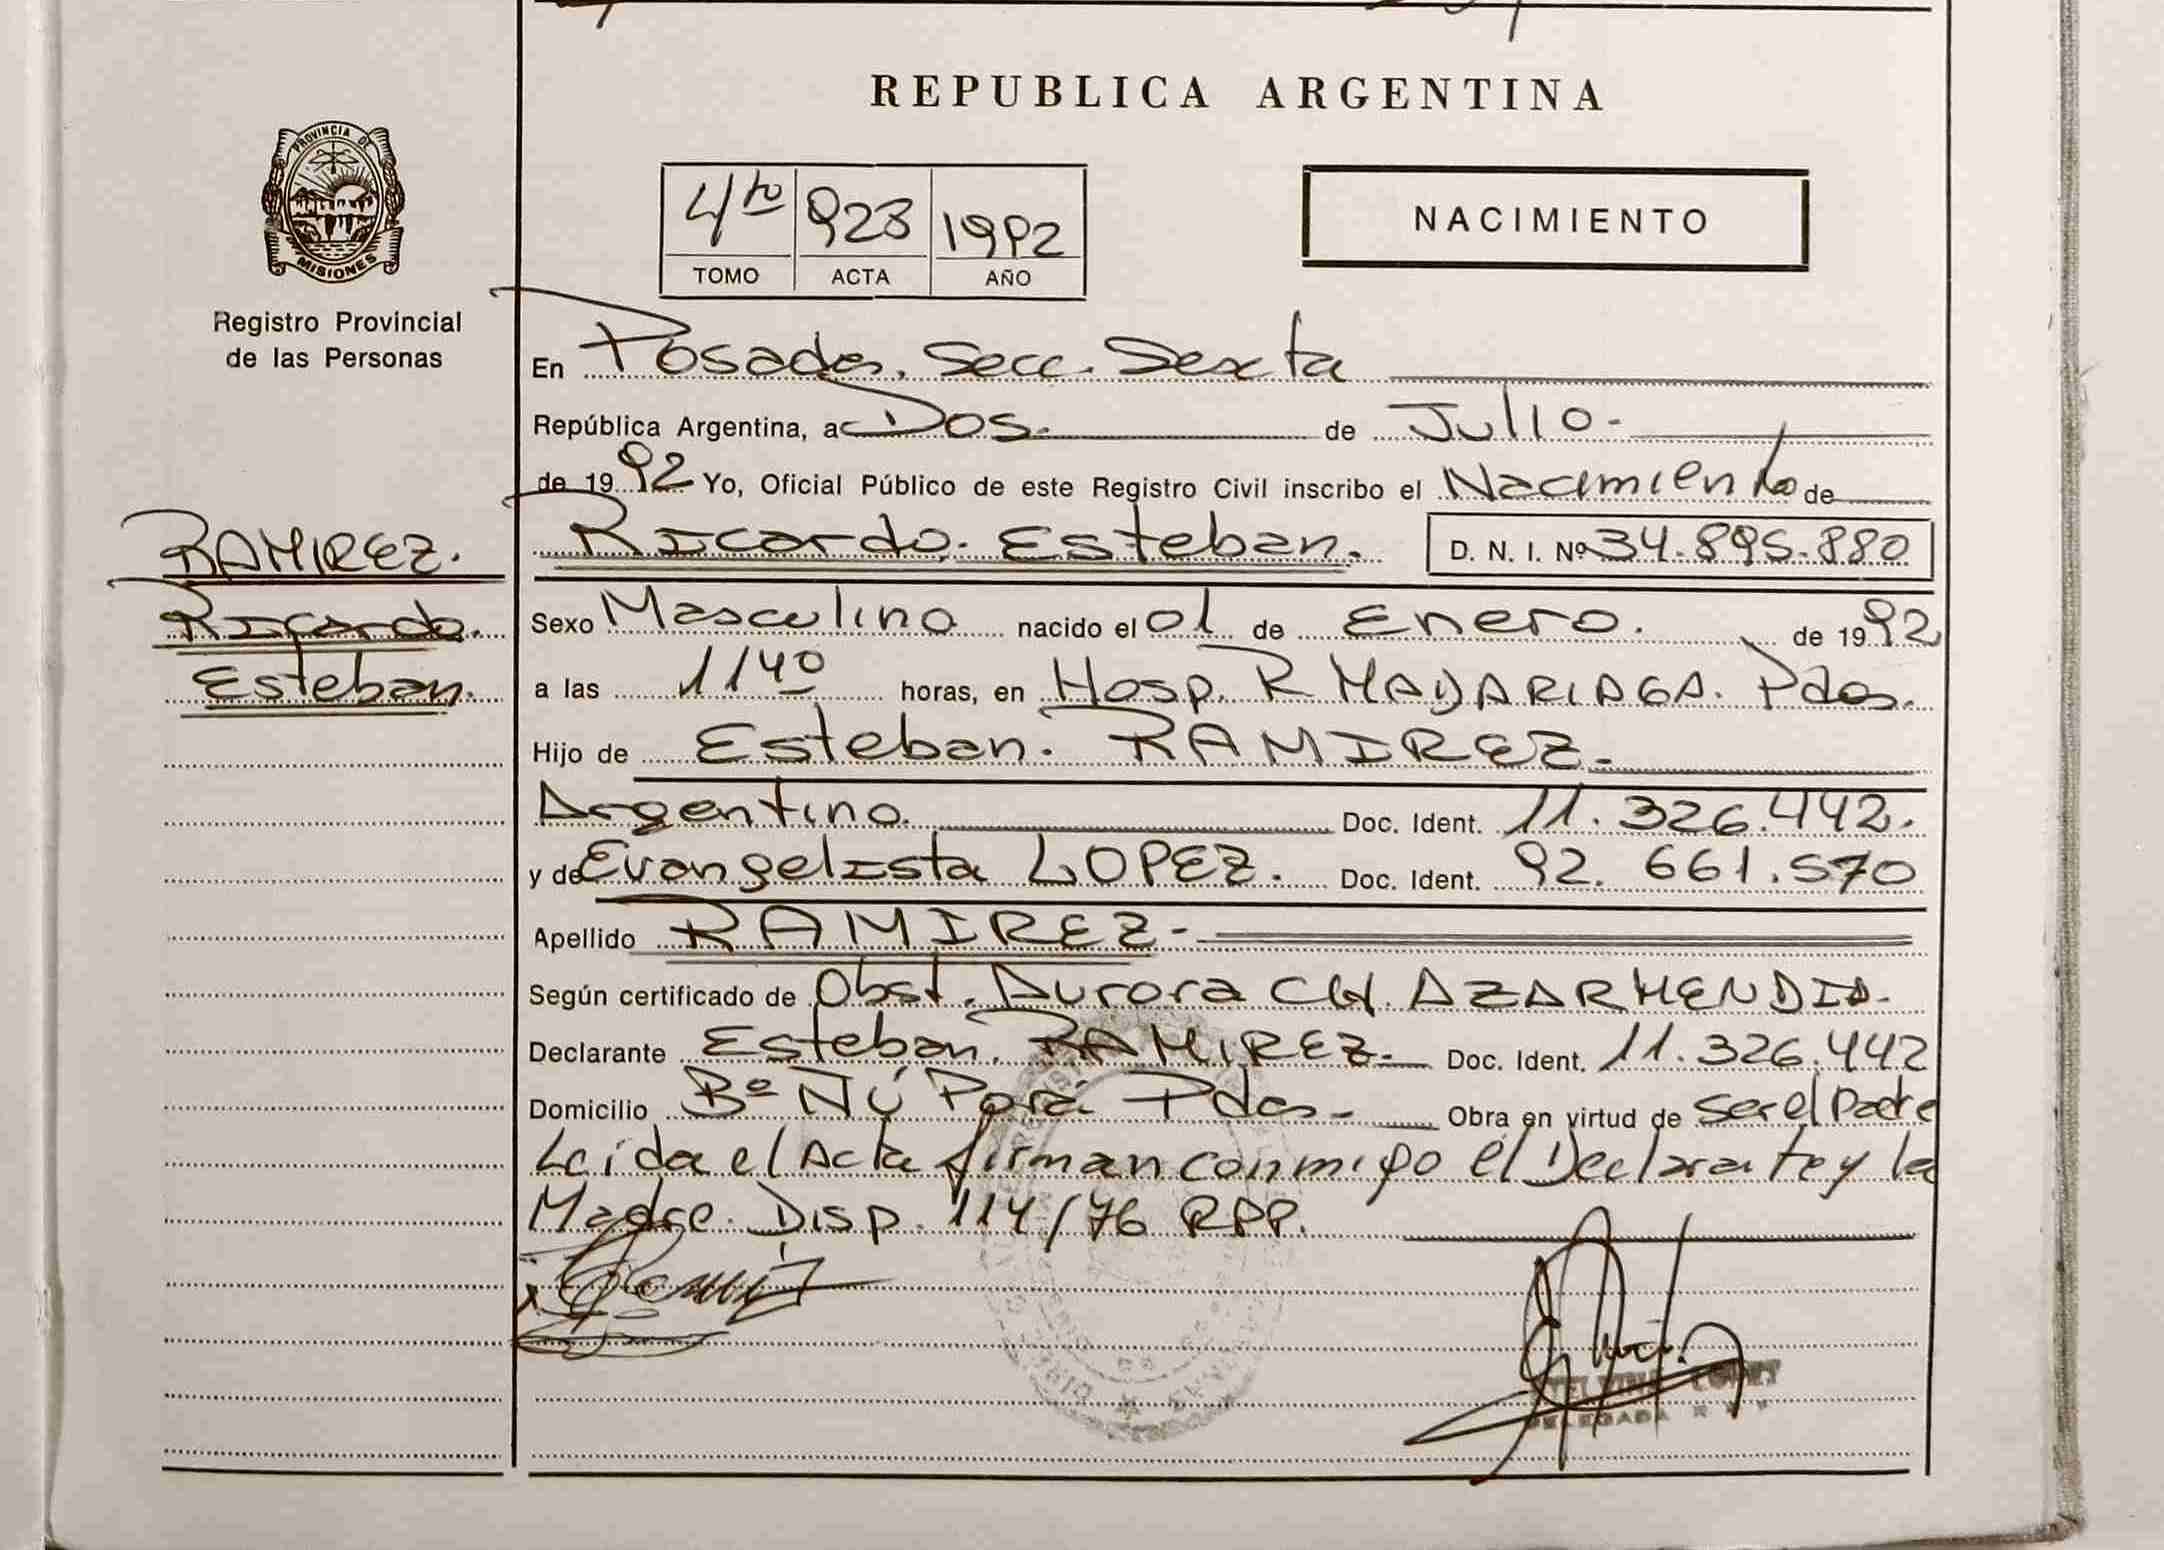 REPUBLICA ARGENTINA
PROVINCIA DE
MISIONES
Registro Provincial
de las Personas
4to 923 1992
TOMO ACTA AÑO
NACIMIENTO
En Posadas, Secc. Sexta
República Argentina, a Dos. de Julio.
de 1992 Yo, Oficial Público de este Registro Civil inscribo el Nacimiento de
RAMIREZ.
Ricardo.
Esteban.
Ricardo. Esteban. D. N. I. Nº 34.895.880
Sexo Masculino nacido el 01 de Enero. de 1992
a las 1140 horas, en Hosp. R MADARIAGA. Pdas.
Hijo de Esteban. RAMIREZ.
Argentino. Doc. Ident. 11.326.442.
y de Evangelista LOPEZ. Doc. Ident. 92.661.570
Apellido RAMIREZ-
Según certificado de Obst. Aurora CH. AZARMENDIA.
Declarante Esteban. RAMIREZ. Doc. Ident. 11.326.442
Domicilio Bº Ñú Porá Pdas. Obra en virtud de ser el Padre
Leída el Acta firman conmigo el Declarante y la
Madre. Disp. 114/76 RPP.
DELEGADA